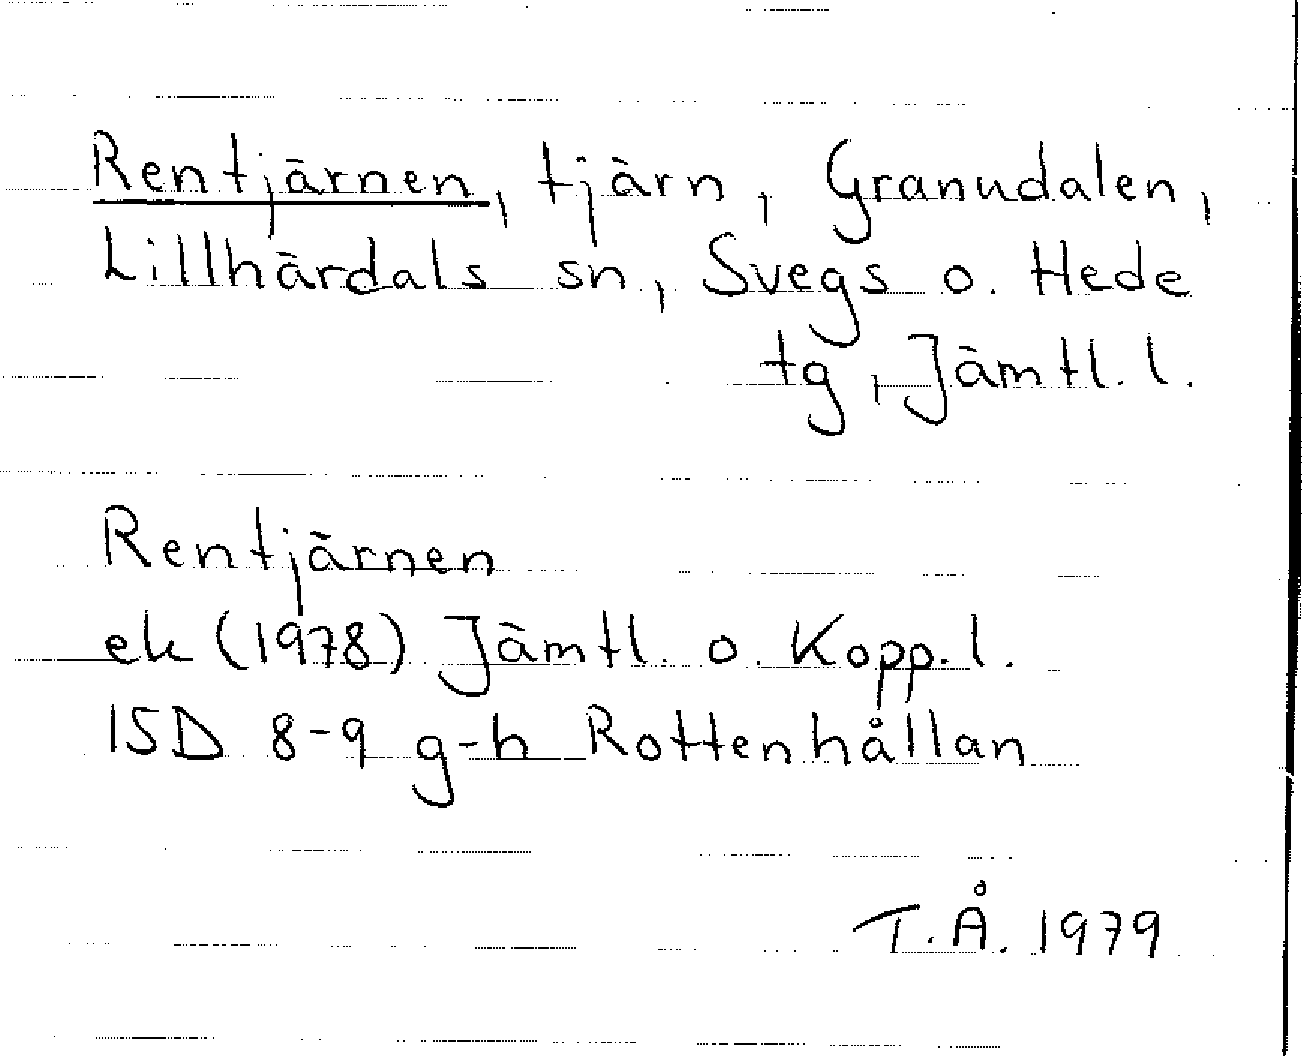 Rentjärnen, tjärn, Granudalen,
Lillhärdals sn, Svegs o. Hede
tg, Jämtl. l.
Rentjärnen
ek (1978) Jämtl. o. Kopp. l.
15D 8-9 g-h Rottenhållan
T.Å. 1979